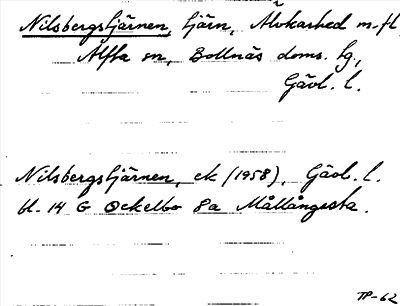 Nilsbergstjärnen, tjärn, Älvkarhed m.fl.
Alfta sn, Bollnäs doms. hg,
Gävl. l.
Nilsbergstjärnen, ek (1958), Gävl. l.
bl. 14 G Ockelbo 8a Mållångssta.
TP-62